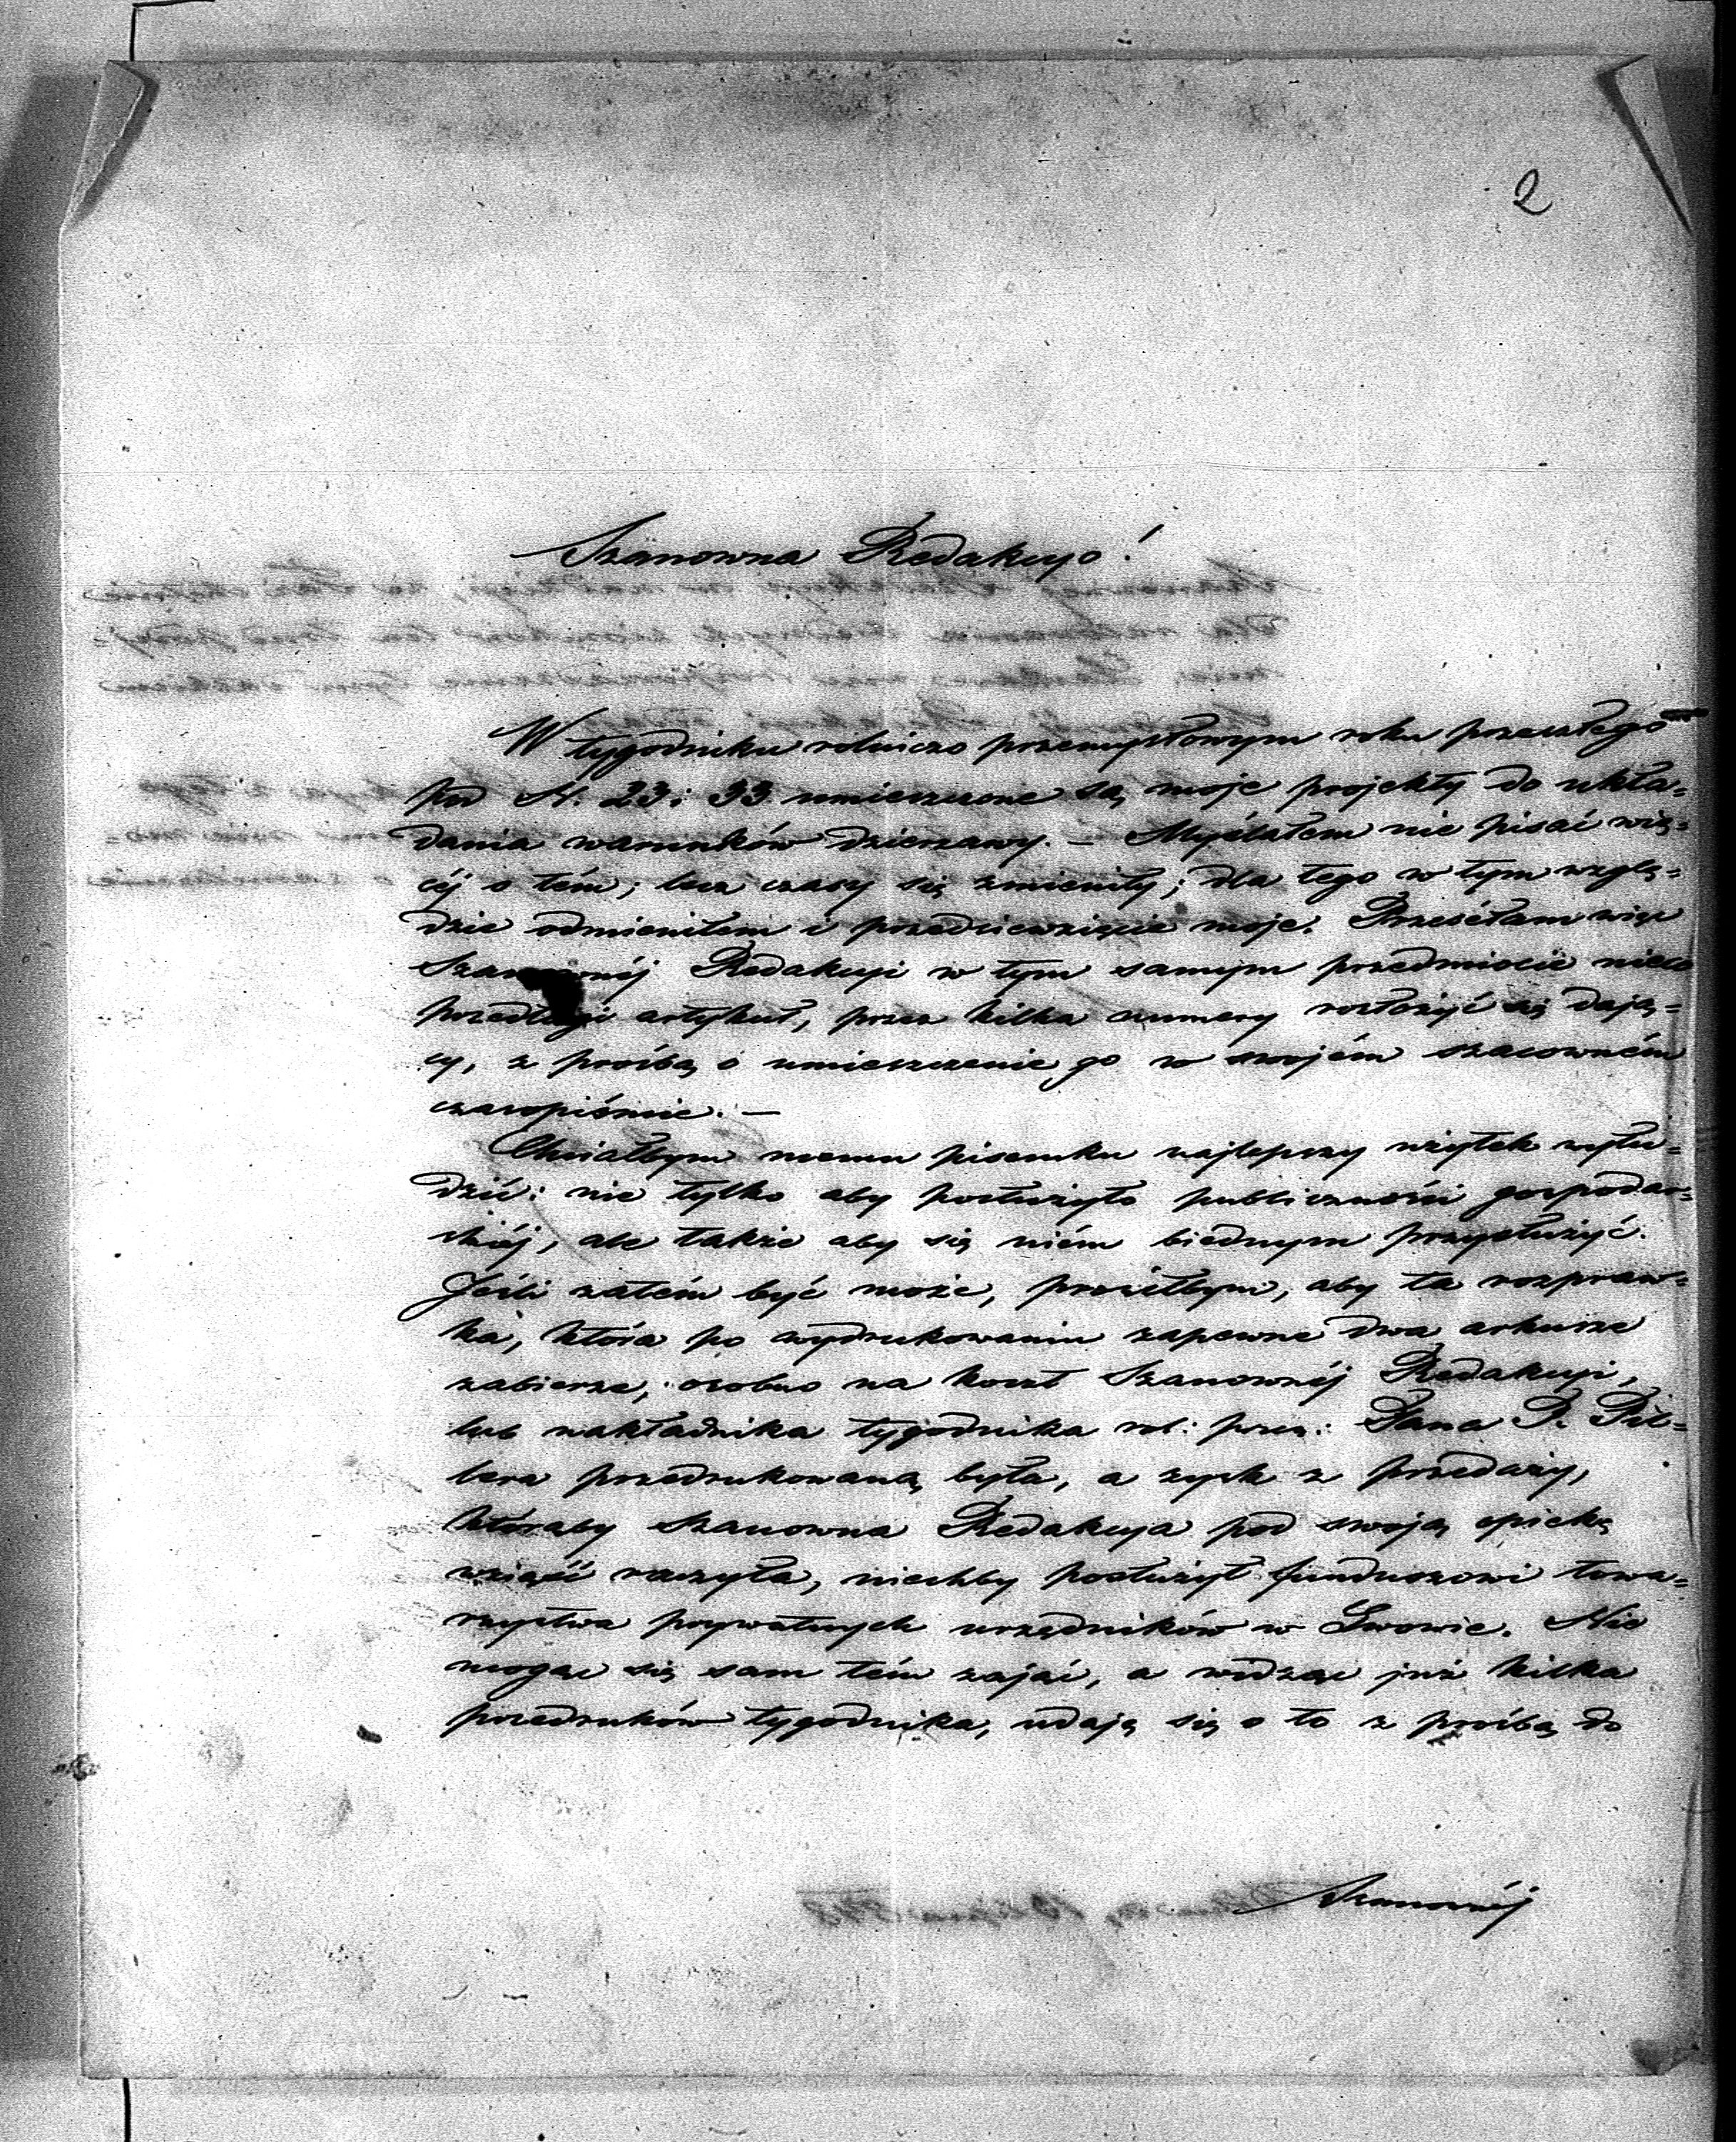 2
Szanowna Redakcyo!
W tygodniku rolniczo przemysłowym roku przeszłego
pod N. 23 i 33 umieszczone są moje projekty do ukła=
dania warunków dzierzawy. — Myślałem nie pisać wię=
céj o tém; lecz czasy się zmieniły; dla tego w tym wzglę=
dzie odmieniłem i przedsiewzięcie moje. Przesełam więc
Szanownéj Redakcyi w tym samym przedmiocie nieco
przedłuższy artykuł, przez kilka numery rozłożyć się dają=
cy, z proźbą o umieszczenie go w swojém szacowném
czasopiśmie. —
Chciałbym memu pisemku najlepszy użytek wyłu=
dzić: nie tylko aby posłużyło publiczności gospodar=
skiéj, ale także aby się niém biednym przysłużyć.
Jeśli zatém być może, prosiłbym, aby ta rozpraw=
ka, która po wydrukowaniu zapewne dwa arkusze
zabierze, osobno na koszt Szanownéj Redakcyi,
lub nakładnika tygodnika rol: prze: Pana P. Pil=
lera przedrukowaną była, a zysk z przedaży,
którąby Szanowna Redakcya pod swoją opiekę
wziąść raczyła, niechby posłużył funduszowi towa=
rzystwa prywatnych urzędników w Lwowie. Nie
mogąc się sam tém zająć, a widząc już kilka
przedruków tygodnika, udaję się o to z proźbą do
Szanownéj